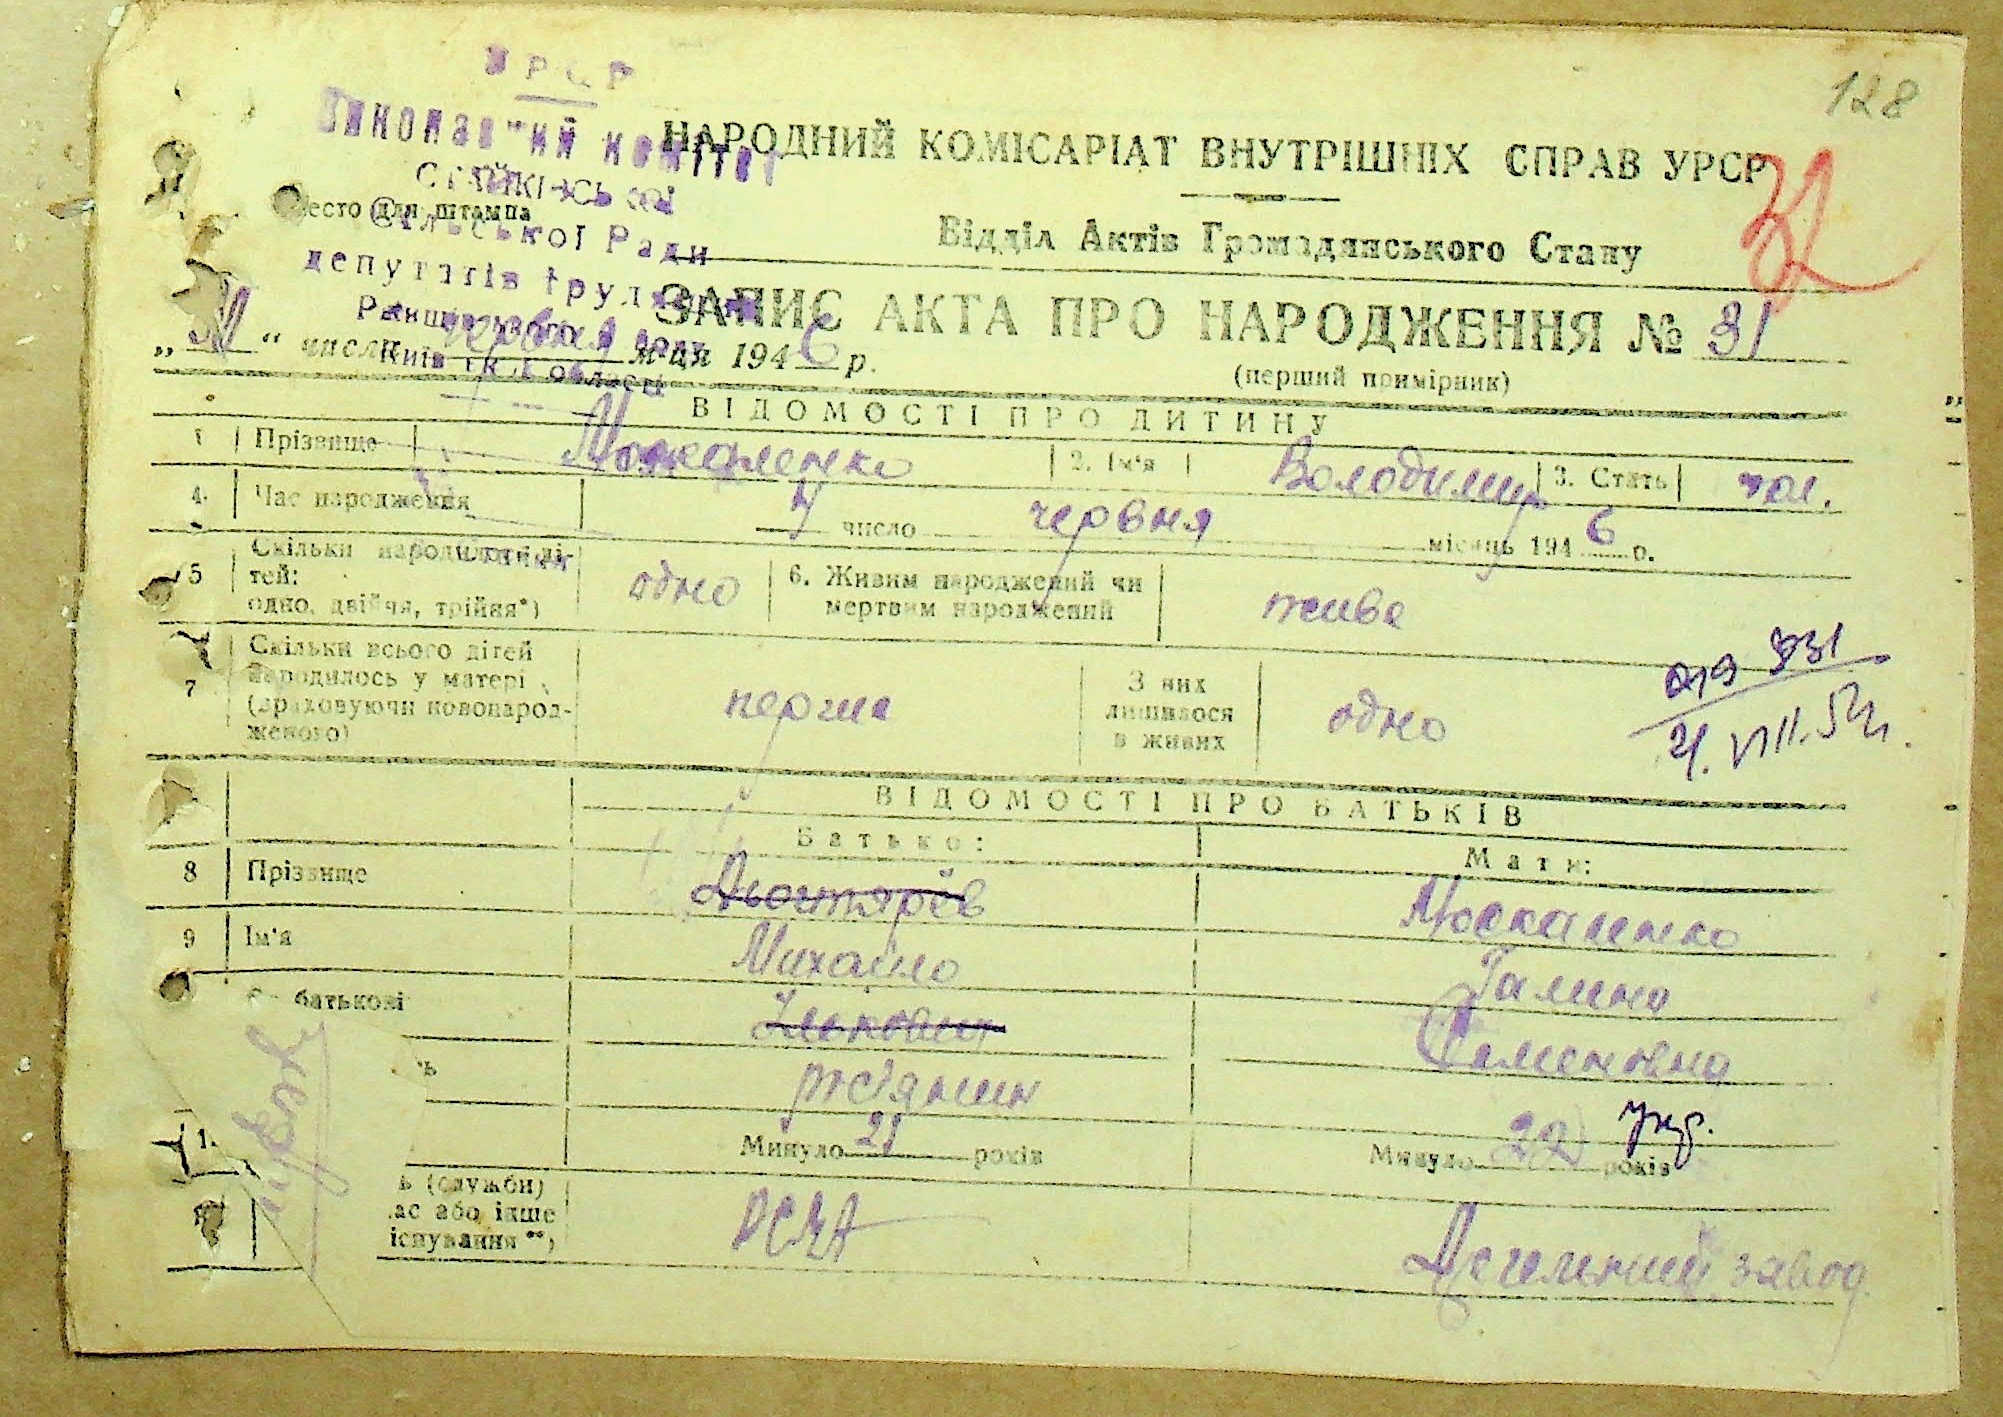 128
УРСР
Виконавчий комітет
Стайківської
Сільської Ради
депутатів трудящих
Київської області
НАРОДНИЙ КОМІСАРІАТ ВНУТРІШНІХ СПРАВ УРСР
32
Место для штампа
Відділ Актів Громадянського Стану
ЗАПИС АКТА ПРО НАРОДЖЕННЯ № 31
„ “ числа червня м-ця 1946 р.
(перший примірник)
ВІДОМОСТІ ПРО ДИТИНУ
1 Прізвище Москаленко 2. Ім'я Володимир 3. Стать чол.
4. Час народження 4 число червня місяць 1946 р.
5 Скільки народилося ді-
тей:
одно, двійня, трійня*) одно 6. Живим народжений чи
мертвим народжений жива
7 Скільки всього дітей
народилось у матері
(враховуючи новонарод-
женого) перша З них
лишилося
в живих одно
ВІДОМОСТІ ПРО БАТЬКІВ
Батько: Мати:
8 Прізвище Дьогтярёв Москаленко
9 Ім'я Михайло Галина
батькові Семеновна
ь укр.
1. Минуло 21 років Минуло 22 років
ь (служби)
ас або інше
існування **) РСЧА Цегельний завод